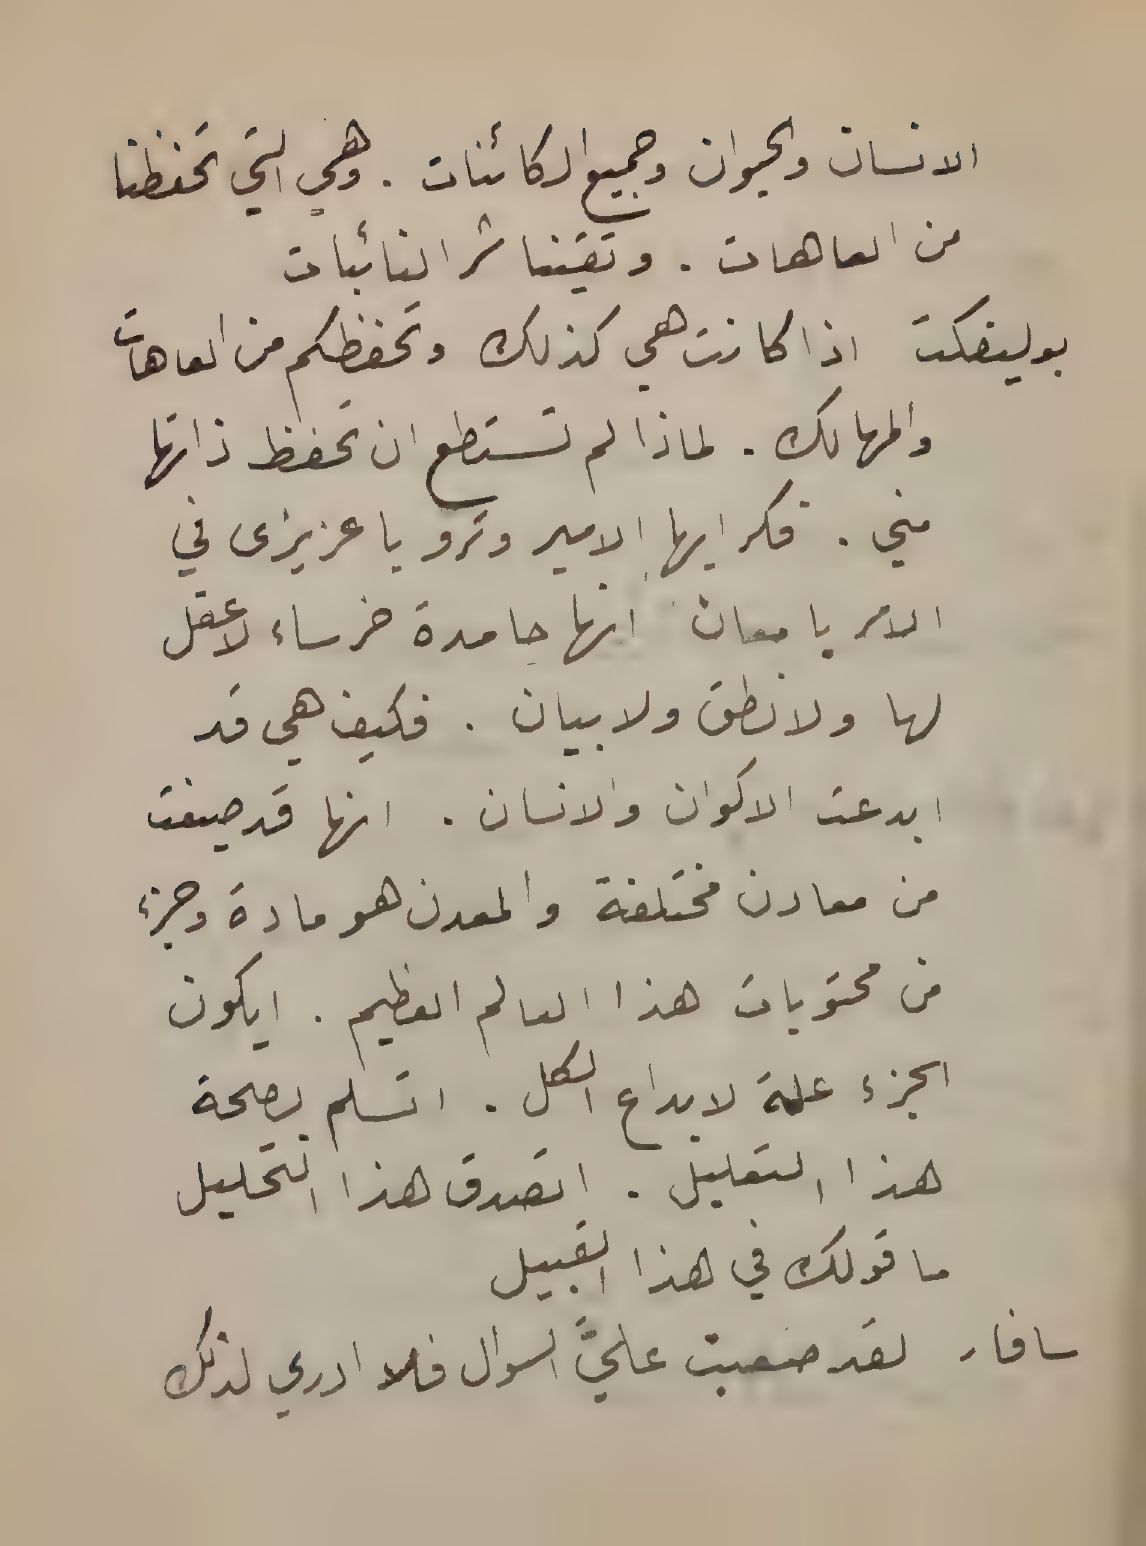 الانسان والحيوان وجميع الكائنات . وهي التي تحفظنا
من العاهات . وتقينا شر النائبات
بوليفكت اذا كانت هي كذلك وتحفظكم من العاهات
والمهالك . لماذا لم تستطع ان تحفظ ذاتها
مني . فكر ايها الامير وتروَّ يا عزيزى في
الامر بامعان انها جامدة خرساء لا عقل
لها ولا نطق ولا بيان . فكيف هي قد
ابدعت الاكوان والانسان . انها قد صيغت
من معادن مختلفة والمعدن هو مادة وجزء
من محتويات هذا العالم العظيم . ايكون
الجزء علة لابداع الكل . اتسلم بصحة
هذا التعليل . اتصدق هذا التحليل
ما قولك في هذا القبيل
سافار لقد صعبت عليَّ السوال فلا ادري لذلك